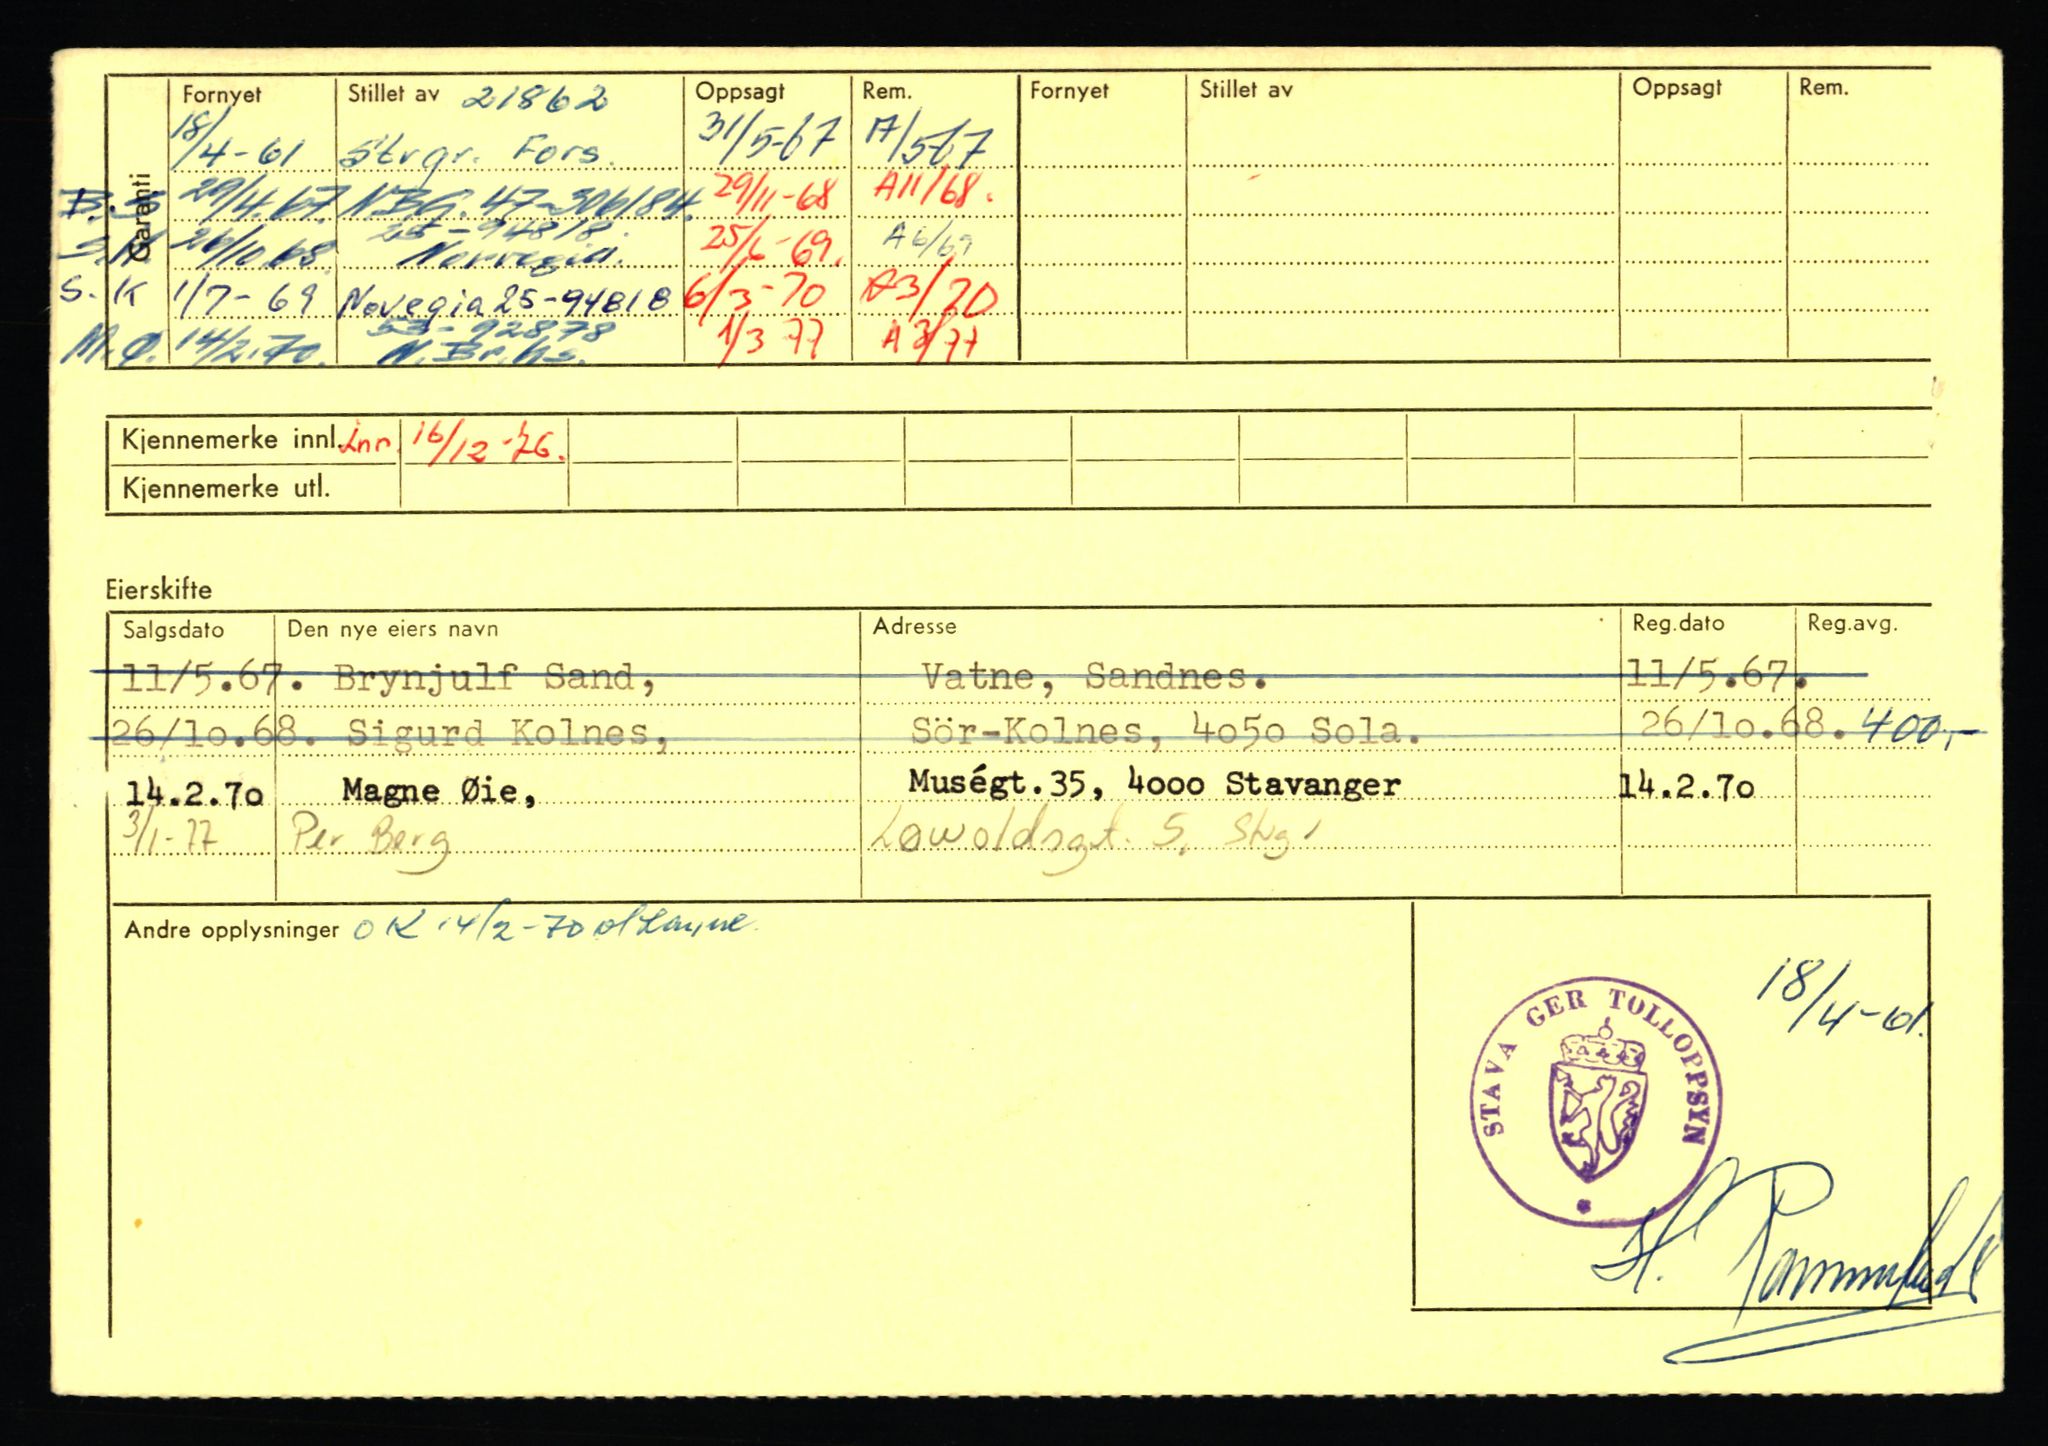 Garanti
Fornyet Stillet av 21862 Oppsagt Rem. Fornyet Stillet av Oppsagt Rem.
18/4-61 Strgr. Fors. 31/5-67 A/5-67
B.S 29/4.67. NBG. 47-306184. 29/11-68 A11/68.
S.K. 26/10.68. 25-94818. Norvegia. 25/6-69. A6/69
S.K 1/7-69 Novegia 25-94818 6/3-70 A3/70
M.Ø. 14/2.70. 53-92878 N.Br.ks. 1/3 77 A3/77
Kjennemerke innl. Inn. 16/12-76.
Kjennemerke utl.
Eierskifte
Salgsdato Den nye eiers navn Adresse Reg.dato Reg.avg.
11/5.67. Brynjulf Sand, Vatne, Sandnes. 11/5.67.
26/10.68. Sigurd Kolnes, Sör-Kolnes, 4050 Sola. 26/10.68. 400,-
14.2.70 Magne Øie, Muségt.35, 4000 Stavanger 14.2.70
3/1-77 Per Berg Løwoldsgt. 5, Stvg.
Andre opplysninger OK 14/2-70
18/4-61.
STAVA GER TOLLOPPSYN
H.